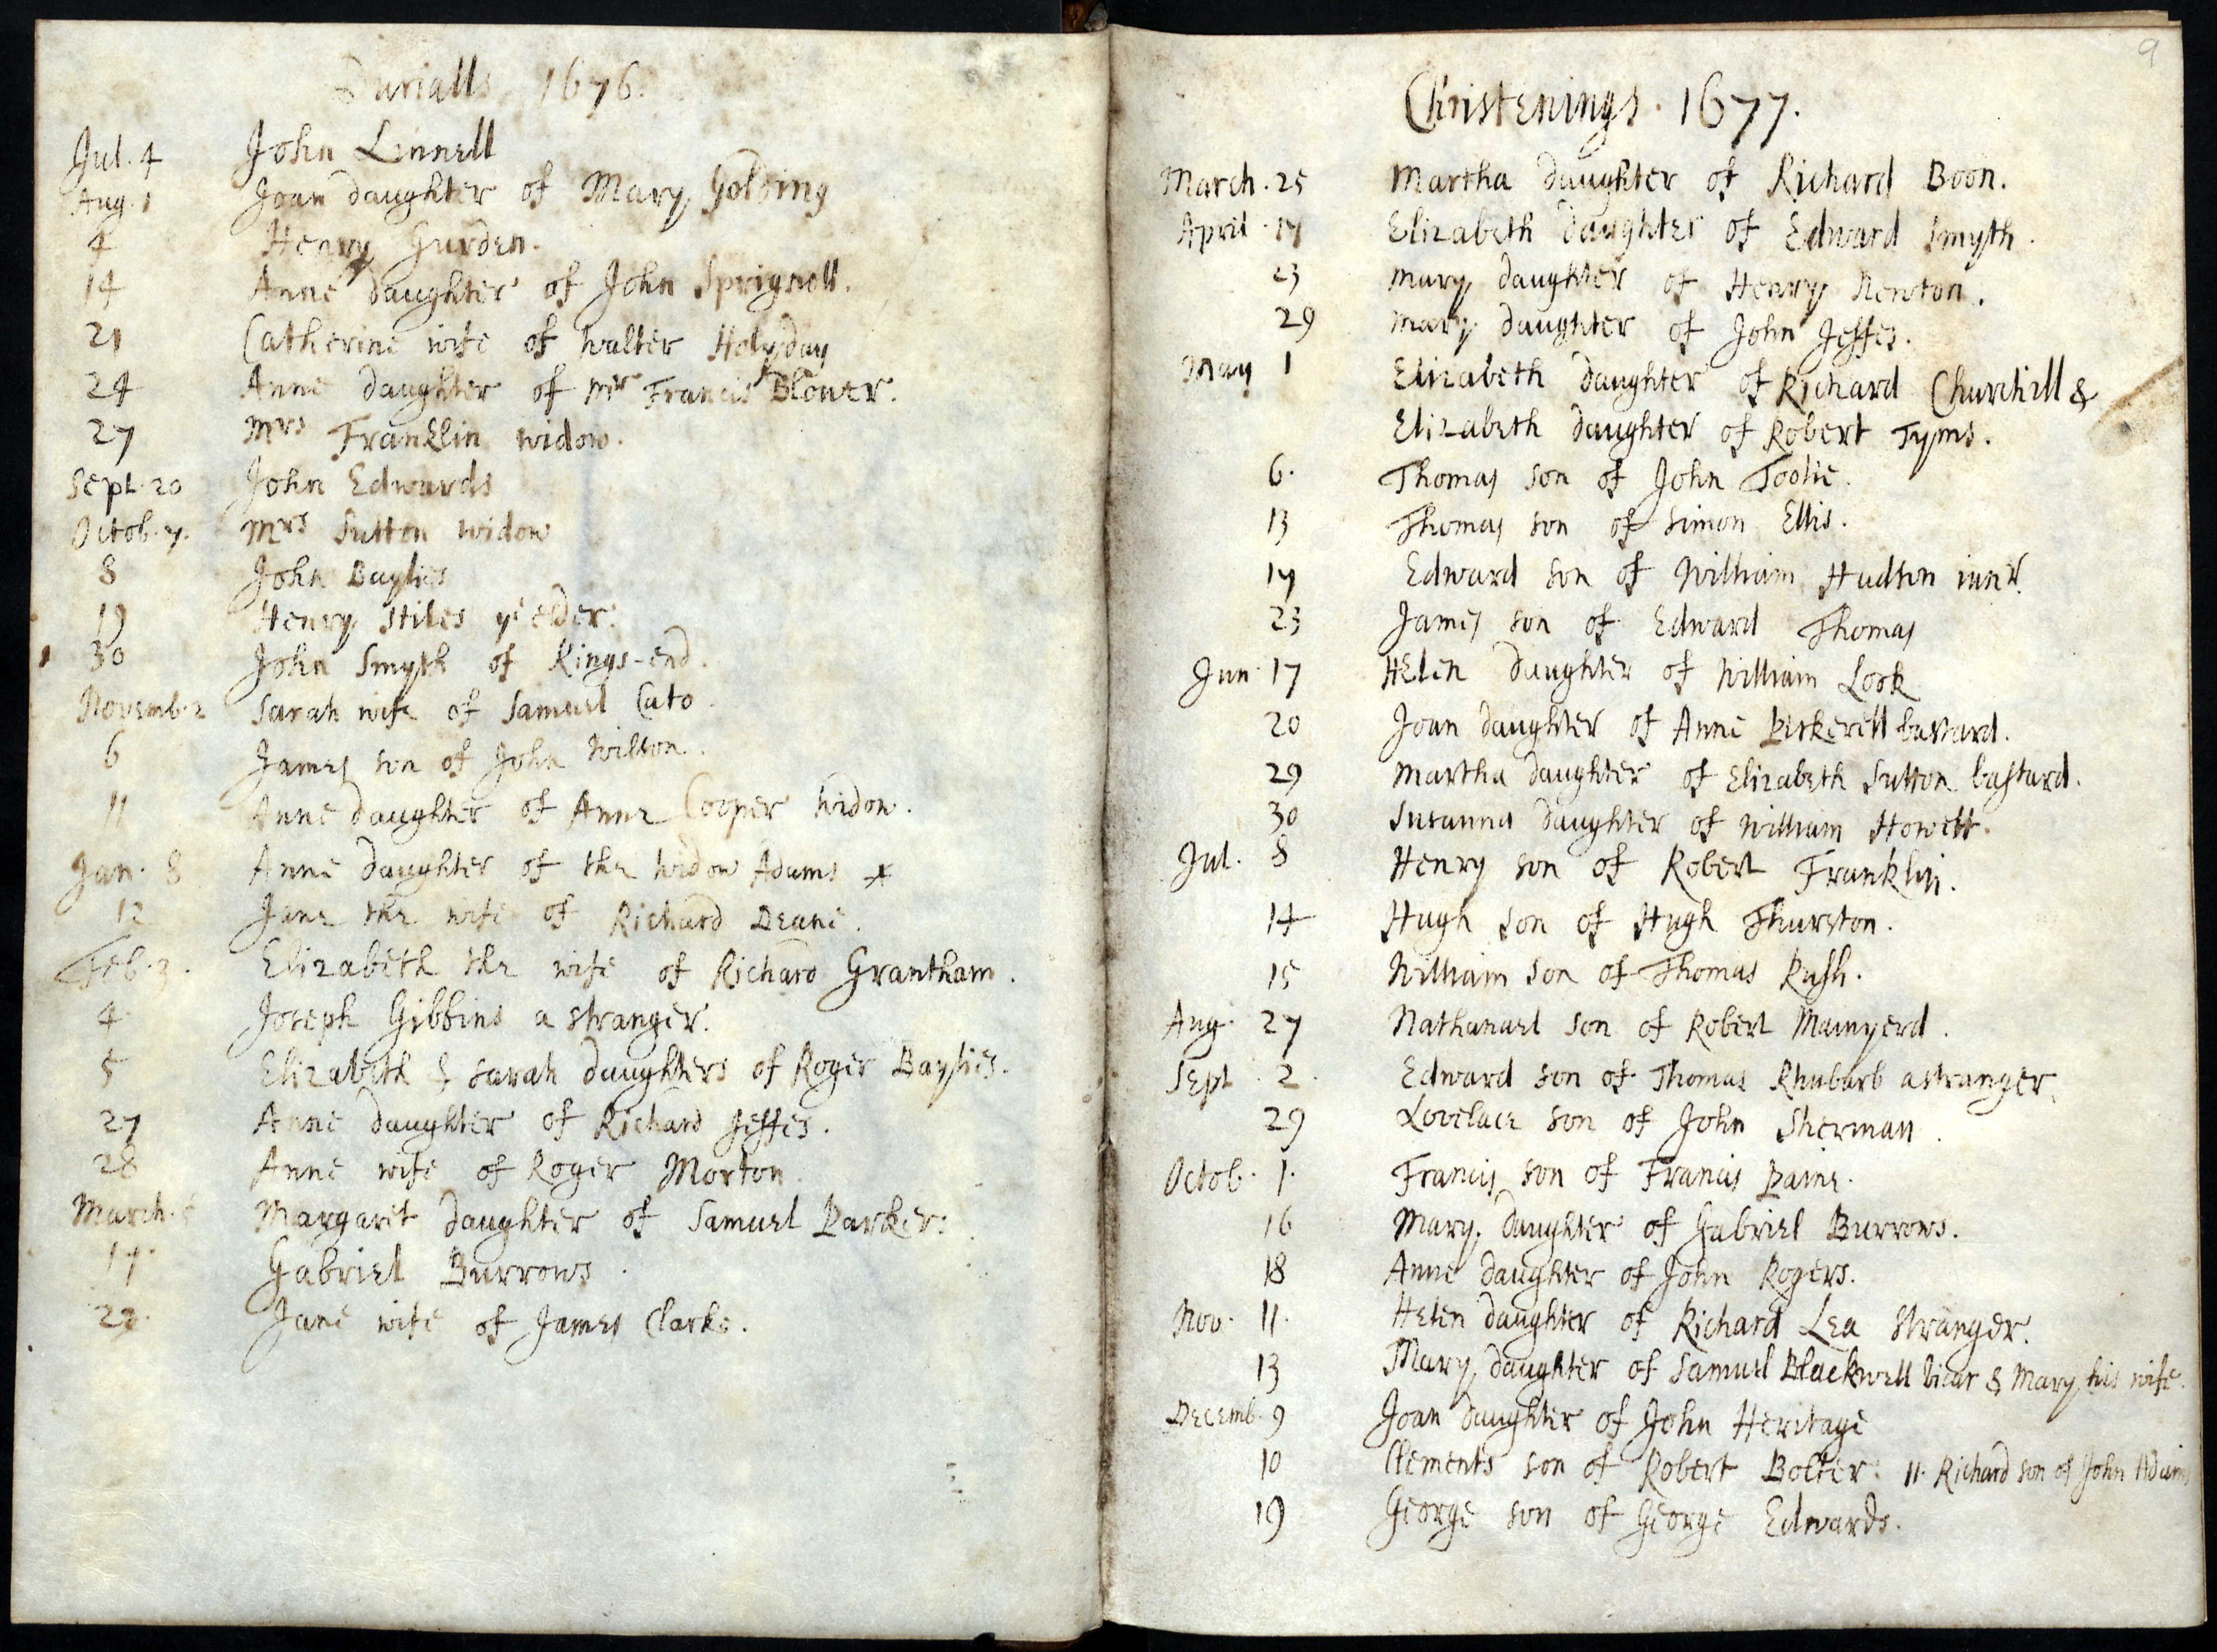 Burialls 1676.
Jul. 4 John Linnell
Aug. 1 Joan daughter of Mary Golding
4 Henry Gurden.
14 Anne daughter of John Sprignell.
21 Catherine wife of Walter Holyday
24 Anne daughter of Mr Francis Blower.
27 Mrs Franklin widow.
Sept. 20 John Edwards
Octob. 7. Mrs Sutton widow
8 John Baylies
19 Henry Stiles ye elder.
30 John Smyth of Kings-end.
Novemb. 2 Sarah wife of Samuel Cato.
6 James son of John Wilson.
11 Anne daughter of Anne Cooper widow.
Jan. 8 Anne daughter of the widow Adams *
12 Jane the wife of Richard Deane.
Feb. 3. Elizabeth the wife of Richard Grantham.
4 Joseph Gibbins a stranger.
5 Elizabeth & Sarah daughters of Roger Baylies.
27 Anne daughter of Richard Jeffes.
28 Anne wife of Roger Morton.
March. Margaret daughter of Samuel Parker.
17. Gabriel Burrows.
Jane wife of James Clarke.
9
Christenings. 1677.
March. 25 Martha daughter of Richard Boon.
April. 17 Elizabeth daughter of Edward Smyth.
23 Mary daughter of Henry Newton.
29 Mary daughter of John Jeffes.
May 1 Elizabeth daughter of Richard Churchill &
Elizabeth daughter of Robert Tyms.
6. Thomas son of John Toolie.
13 Thomas son of Simon Ellis.
17 Edward son of William Hudson iunr.
23 James son of Edward Thomas
Jun. 17 Helen daughter of William Look
20 Joan daughter of Anne Pickerell bastard.
29 Martha daughter of Elizabeth Sutton bastard.
30 Susanna daughter of William Howett.
Jul. 8 Henry son of Robert Franklin.
14 Hugh son of Hugh Thurston.
15 William son of Thomas Rush.
Aug. 27 Nathanael son of Robert Mainyerd.
Sept. 2. Edward son of Thomas Rhubarb a stranger.
29 Lovelace son of John Sherman.
Octob. 1. Francis son of Francis Paine.
16 Mary daughter of Gabriel Burrows.
18 Anne daughter of John Rogers.
Nov. 11. Helen daughter of Richard Lea stranger.
13 Mary daughter of Samuel Blackwell vicar & Mary his wife.
Decemb. 9 Joan daughter of John Heritage
10 Clements son of Robert Bolter: 11. Richard son of John Adams
19 George son of George Edwards.